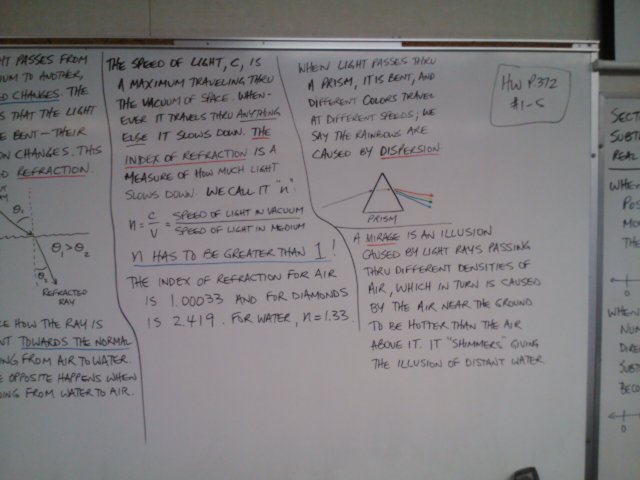 HT PASSES FROM
IUM TO ANOTHER,
ED CHANGES. THE
S THAT THE LIGHT
E BENT - THEIR
ON CHANGES. THIS
D REFRACTION.
RAY
θ1
θ1 > θ2
θ2
REFRACTED
RAY
CE HOW THE RAY IS
NT TOWARDS THE NORMAL
ING FROM AIR TO WATER.
E OPPOSITE HAPPENS WHEN
OING FROM WATER TO AIR.
THE SPEED OF LIGHT, C, IS
A MAXIMUM TRAVELING THRU
THE VACUUM OF SPACE. WHEN-
EVER IT TRAVELS THRU ANYTHING
ELSE IT SLOWS DOWN. THE
INDEX OF REFRACTION IS A
MEASURE OF HOW MUCH LIGHT
SLOWS DOWN. WE CALL IT "n":
n = C/V = SPEED OF LIGHT IN VACUUM / SPEED OF LIGHT IN MEDIUM
n HAS TO BE GREATER THAN 1!
THE INDEX OF REFRACTION FOR AIR
IS 1.00033 AND FOR DIAMONDS
IS 2.419. FOR WATER, n=1.33.
WHEN LIGHT PASSES THRU
A PRISM, IT IS BENT, AND
DIFFERENT COLORS TRAVEL
AT DIFFERENT SPEEDS; WE
SAY THE RAINBOWS ARE
CAUSED BY DISPERSION.
PRISM
A MIRAGE IS AN ILLUSION
CAUSED BY LIGHT RAYS PASSING
THRU DIFFERENT DENSITIES OF
AIR, WHICH IN TURN IS CAUSED
BY THE AIR NEAR THE GROUND
TO BE HOTTER THAN THE AIR
ABOVE IT. IT "SHIMMERS" GIVING
THE ILLUSION OF DISTANT WATER.
HW P372
#1-5
SECT
SUBT
REAL
WHEN
POS
MO
THE
0
WHEN
NUM
DIRE
SUBT
BECO
0